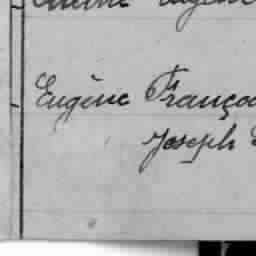 Eugène Françoi
Joseph